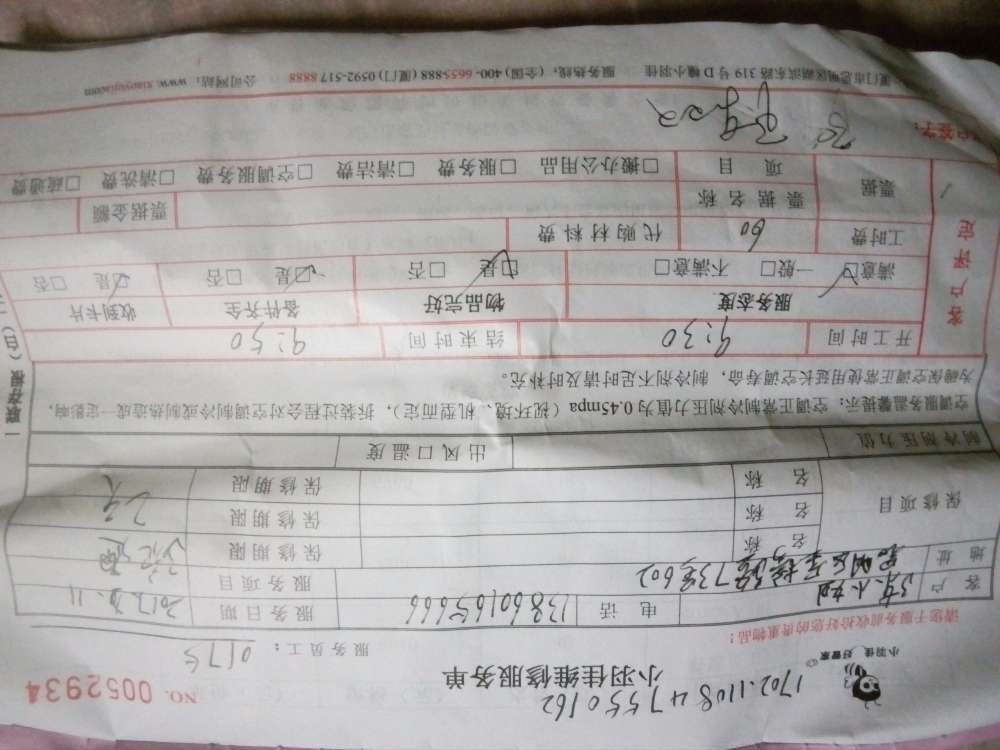 1702.1108475550162
小羽佳 好管家
小羽佳维修服务单
NO. 0052934
请您于服务前收拾好您的贵重物品！
服务员工：
客户 电话 13860165666 服务日期
地址 服务项目
保修项目 名称 保修期限
名称 保修期限
名称 保修期限
制冷剂压力值 出风口温度
空调服务温馨提示：空调正常制冷剂压力为值为0.45mpa（视环境、机型而定），拆装过程会对空调制冷或制热造成一定影响，
为确保空调正常使用延长空调寿命，制冷剂不足时请及时补充。
客户评定
开工时间 9:30 结束时间 9:50
服务态度 物品完好 备件齐全 收到卡片
满意☑ 一般□ 不满意□ ☑是 □否 ☑是 □否 ☑是 □否
工时费 60 代购材料费
票据 票据名称 票据金额
项目 □搬办公用品 □服务费 □清洁费 □空调服务费 □清洗费 □疏通费
签字：
厦门市思明区湖滨东路319号D幢小羽佳 服务热线：（全国）400-6655888（厦门）0592-5178888 公司网站：www.xiaoyujia.com
一联存根（白）